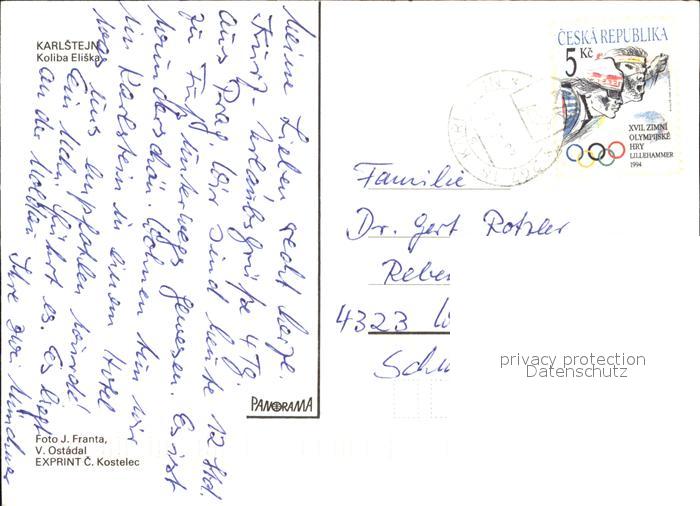 KARLŠTEJN
Koliba Eliška
Meine Lieben recht herzl.
Kurz-Urlaubsgrüße 4 Tg.
aus Prag. Wir sind heute 12 Std.
zu Fuß unterwegs gewesen. Es ist
wunderschön. Wohnen tun wir
in Karlstein in einem Hotel
was uns empfohlen wurde
Ein führt es. Es liegt
an der Moldau Ihre zwei Münchner
Foto J. Franta,
V. Ostádal
EXPRINT Č. Kostelec
PANORAMA
ČESKÁ REPUBLIKA
5 Kč
XVII. ZIMNÍ
OLYMPIJSKÉ
HRY
LILLEHAMMER
1994
Familie
Dr. Gert Rotzler
Rebe
4323
Sch
privacy protection
Datenschutz